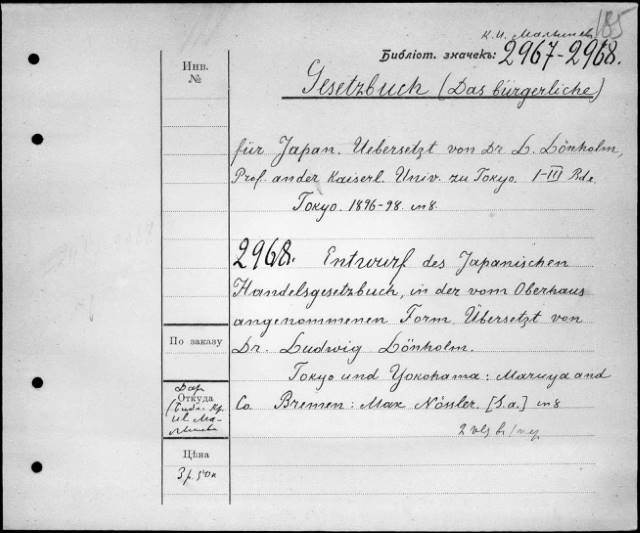 185
К.И. Малышев
Библіот. значекъ: 2967-2968.
Инв.
№
Gesetzbuch (Das bürgerliche)
für Japan. Uebersetzt von Dr L. Lönholm,
Prof. an der Kaiserl. Univ. zu Tokyo. I-III Bde.
Tokyo. 1896-98. in 8.
2968. Entwurf des Japanischen
Handelsgesetzbuch, in der vom Oberhaus
angenommenen Form. Übersetzt von
По заказу
Dr. Ludwig Lönholm.
Tokyo und Yokohama: Maruya and
Дар
Откуда
Co Bremen: Max Nössler. [S.a.] in 8
2
Цѣна
3 р. 50 к